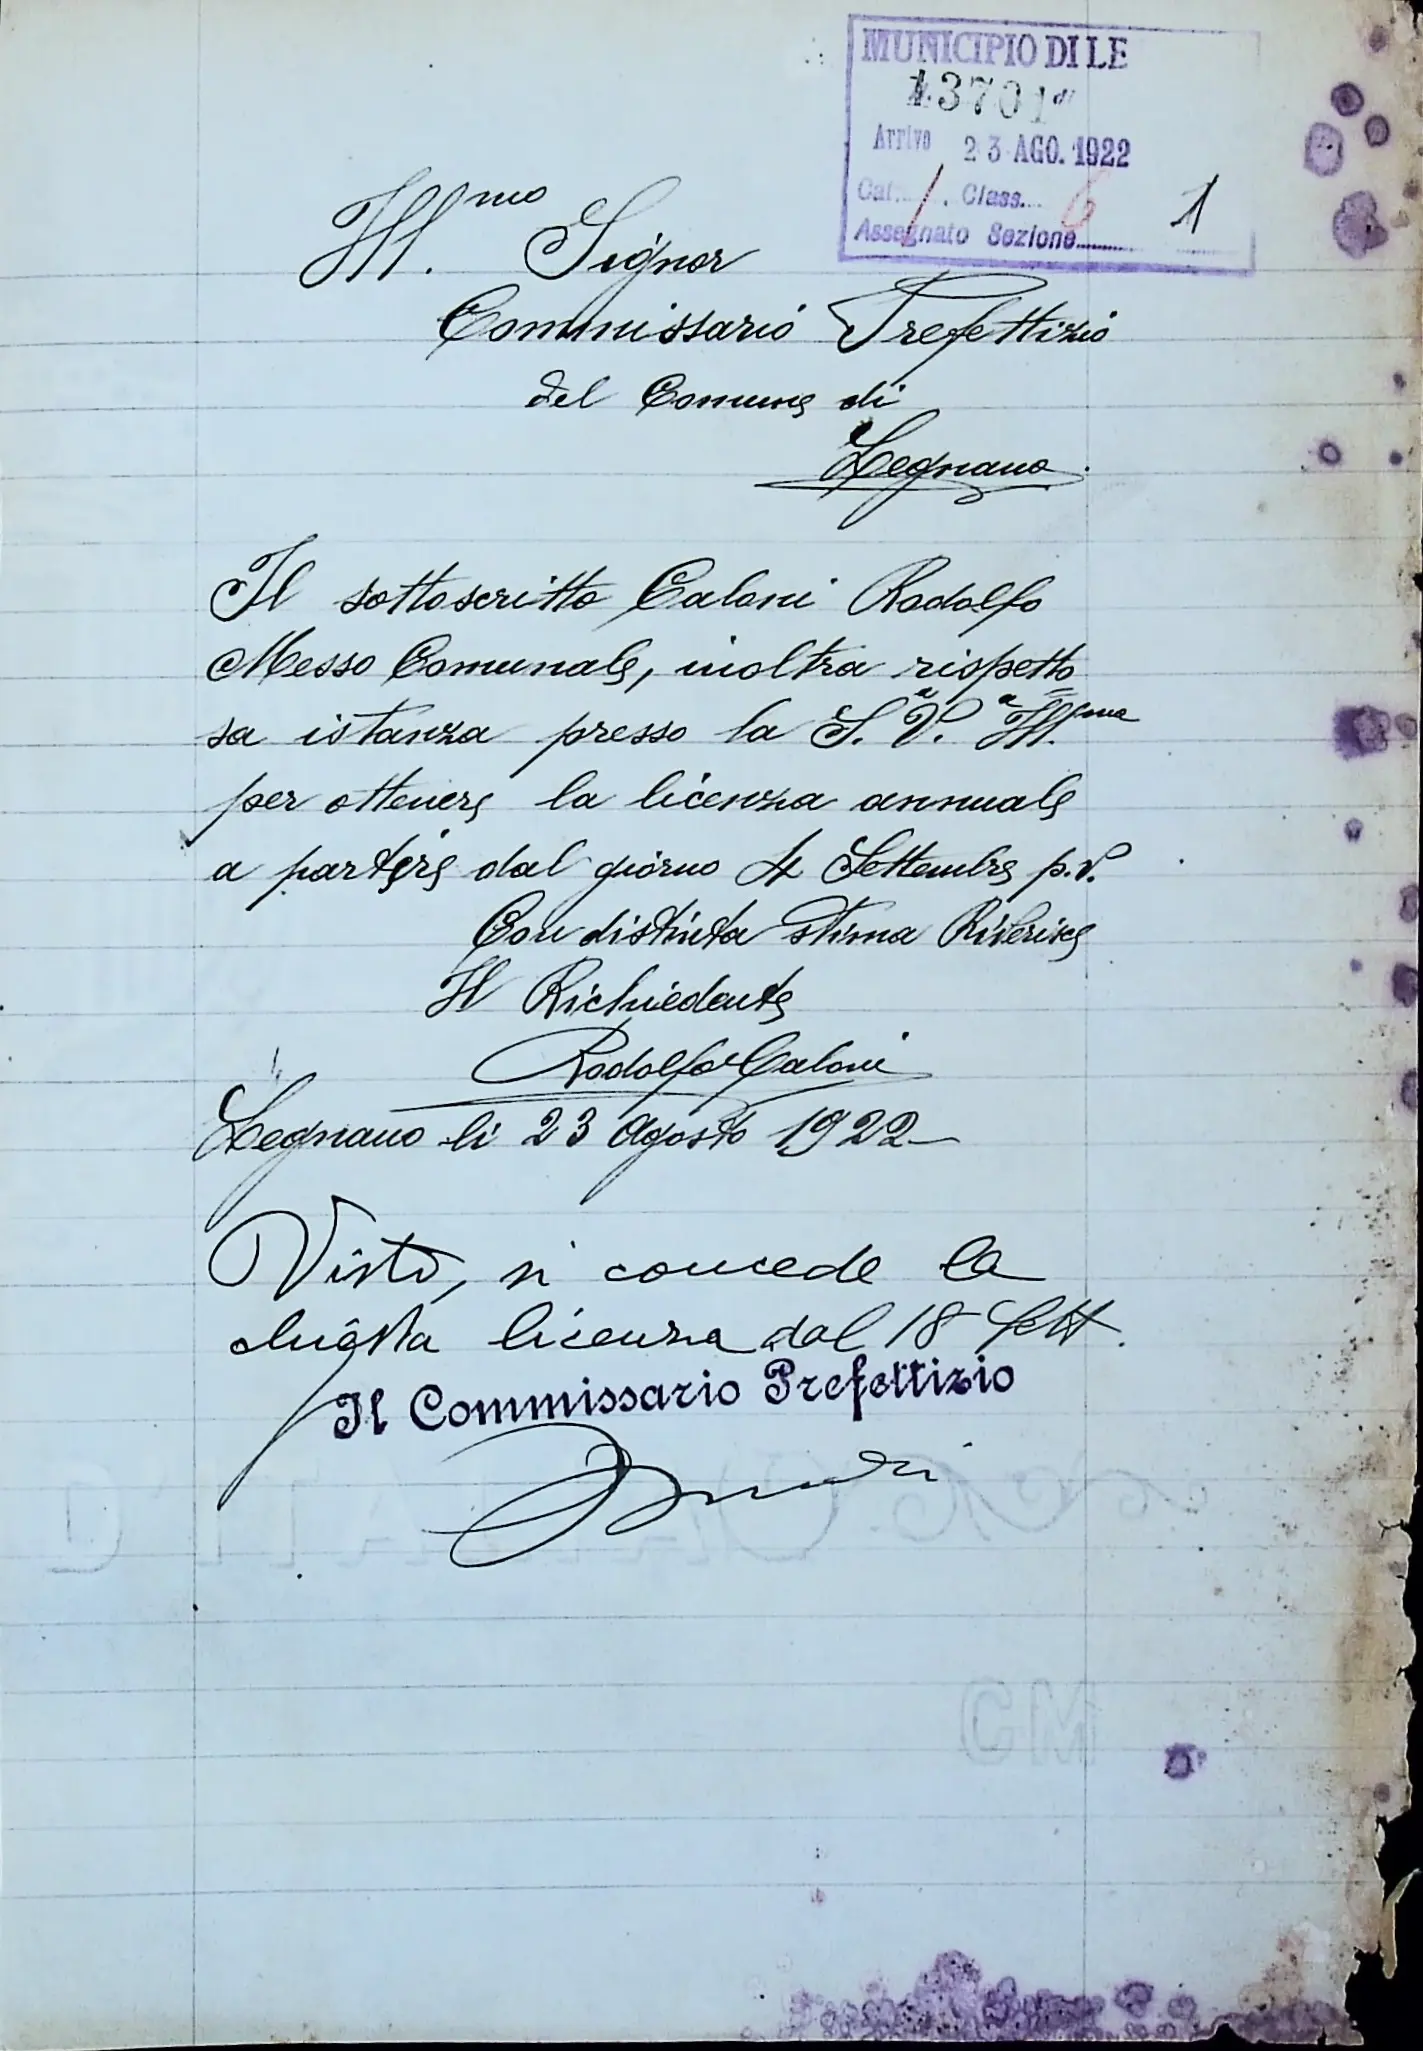 MUNICIPIO DI LE
13701 di
Arrivo 23 AGO. 1922
Cat. 1. Class. 6
Assegnato Sezione
1
Ill.mo Signor
Commissario Prefettizio
del Comune di
Legnano.
Il sottoscritto Caloni Rodolfo
Messo Comunale, inoltra rispetto
sa istanza presso la S.a V.a Ill.ma
per ottenere la licenza annuale
a partire dal giorno 4 Settembre p.v.
Con distinta stima Riverisce
Il Richiedente
Rodolfo Caloni
Legnano li 23 Agosto 1922
Visto, si concede la
chiesta licenza dal 18 Sett.
Il Commissario Prefettizio